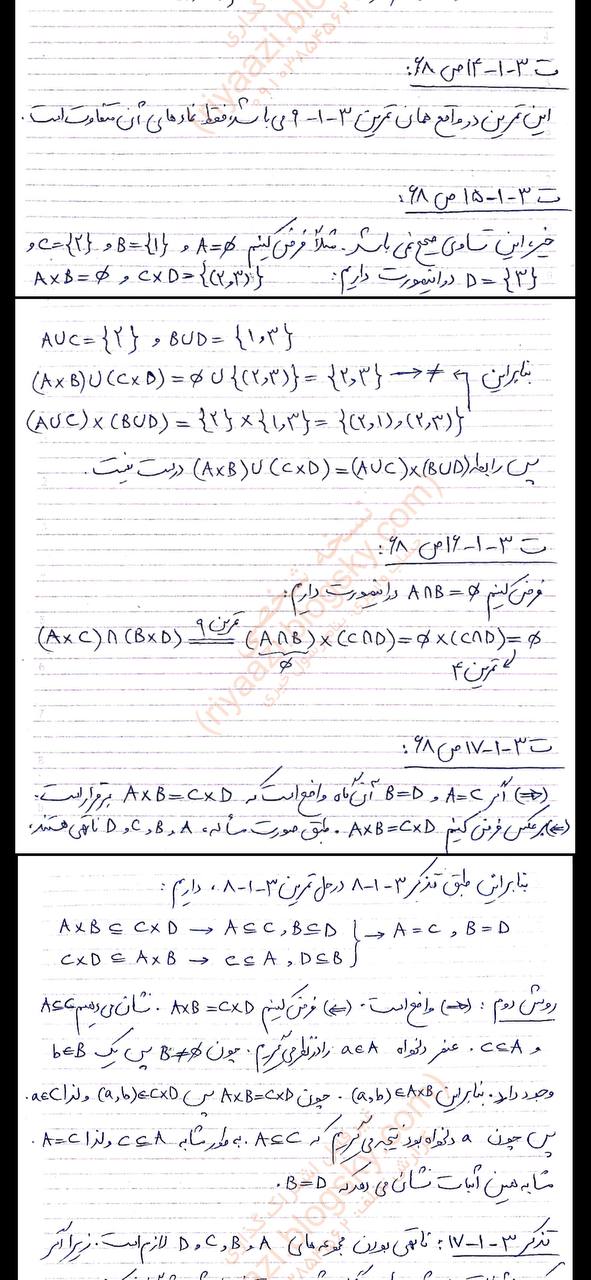 ت ۳-۱-۱۴ ص ۶۸:
این تمرین در واقع همان تمرین ۳-۱-۹ می باشد فقط نمادهای آن متفاوت است.
ت ۳-۱-۱۵ ص ۶۸:
خیر، این تساوی صحیح نمی باشد. مثلاً فرض کنیم A=∅ و B={۱} و C={۲} و
D={۳} در اینصورت داریم: A×B=∅ و C×D={(۲,۳)}
A∪C={۲} و B∪D={۱,۳}
بنابراین (A×B)∪(C×D)=∅∪{(۲,۳)}={۲,۳} → ≠
(A∪C)×(B∪D)={۲}×{۱,۳}={(۲,۱),(۲,۳)}
پس رابطه (A×B)∪(C×D)=(A∪C)×(B∪D) درست نیست.
ت ۳-۱-۱۶ ص ۶۸:
فرض کنیم A∩B=∅ در اینصورت داریم:
(A×C)∩(B×D) =تمرین ۹= (A∩B)×(C∩D)=∅×(C∩D)=∅
∅ تمرین ۴
ت ۳-۱-۱۷ ص ۶۸:
(⇒) اگر A=C و B=D آن گاه واضح است که A×B=C×D برقرار است.
(⇐) برعکس فرض کنیم A×B=C×D. طبق صورت مسأله، A، B، C و D ناتهی هستند،
بنابراین طبق تذکر ۳-۱-۸ در حل تمرین ۳-۱-۸، داریم:
A×B⊆C×D → A⊆C, B⊆D } → A=C, B=D
C×D⊆A×B → C⊆A, D⊆B
روش دوم: (⇒) واضح است. (⇐) فرض کنیم A×B=C×D. نشان می دهیم A⊆C
و C⊆A. عنصر دلخواه a∈A را در نظر می گیریم. چون B≠∅ پس یک b∈B
وجود دارد. بنابراین (a,b)∈A×B. چون A×B=C×D پس (a,b)∈C×D و لذا a∈C.
پس چون a دلخواه بود نتیجه می گیریم که A⊆C. به طور مشابه C⊆A و لذا A=C.
مشابه همین اثبات نشان می دهد که B=D.
تذکر ۳-۱-۱۷: ناتهی بودن مجموعه های A، B، C و D لازم است. زیرا اگر
نسخه شخصی
(riyaazi.blogsky.com)